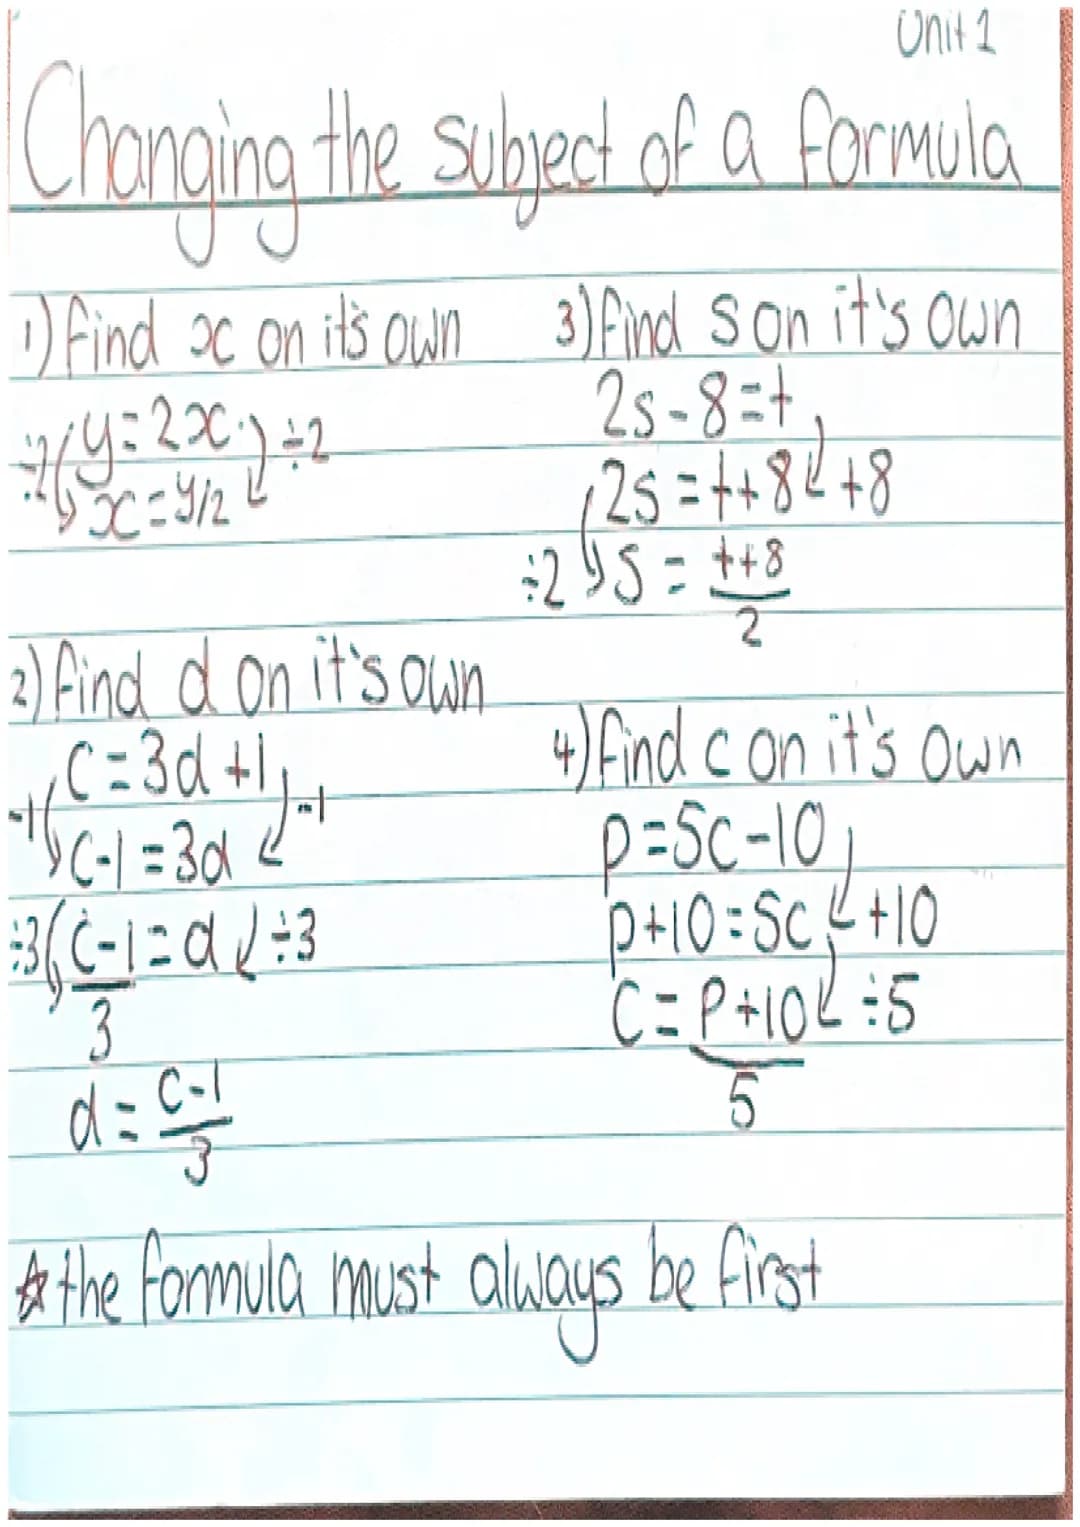 Unit 1
Changing the subject of a formula
1) find x on it's own
÷2 y=2x ÷2
x=y/2
2) find d on it's own
c=3d+1
-1 -1
c-1=3d
÷3 c-1=d ÷3
3
d=c-1
3
3) find s on it's own
2s-8=t
2s=t+8 +8
÷2 s=t+8
2
4) find c on it's own
p=5c-10
p+10=5c +10
c=p+10 ÷5
5
☆ the formula must always be first